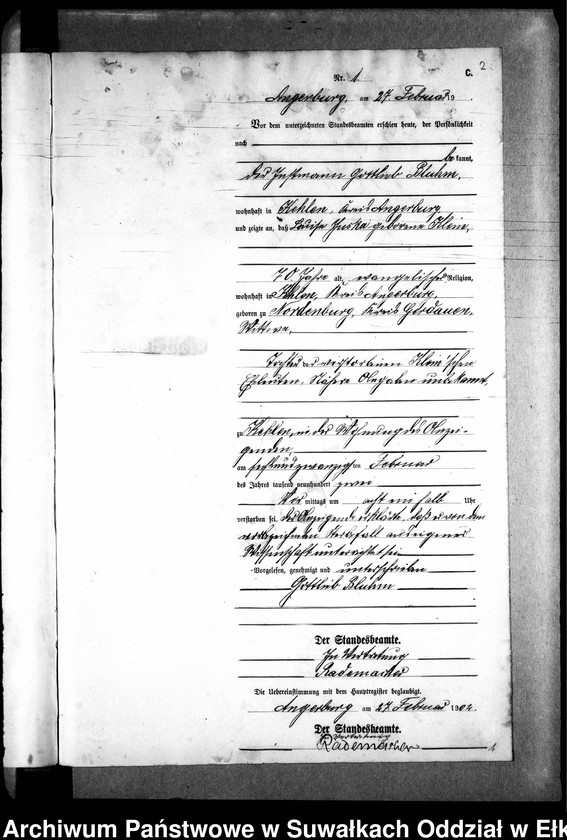 C. 2
Nr. 1.
Angerburg, am 27. Februar 19
Vor dem unterzeichneten Standesbeamten erschien heute, der Persönlichkeit
nach
bekannt,
der Instmann Gottlieb Bluhm,
wohnhaft in Kehlen, Kreis Angerburg
und zeigte an, daß Louise Juska geborene Klein,
70 Jahre alt, evangelischer Religion,
wohnhaft in Kehlen, Kreis Angerburg,
geboren zu Nordenburg, Kreis Gerdauen,
Wittwe,
Tochter der verstorbenen Klein'schen
Eheleuten, Nähere Angaben unbekannt,
zu Kehlen, in der Wohnung des Anzei-
genden,
am sechsundzwanzigsten Februar
des Jahres tausend neunhundert zwei
Vor mittags um acht ein halb Uhr
verstorben sei. Der Anzeigende erklärte, daß er von dem
vorbezeichneten Sterbefall aus eigener
Wissenschaft unterrichtet sei
Vorgelesen, genehmigt und unterschrieben
Gottlieb Bluhm
Der Standesbeamte.
In Vertretung
Rademacher
Die Uebereinstimmung mit dem Hauptregister beglaubigt.
Angerburg am 27. Februar 1902.
Der Standesbeamte.
In Vertretung
Rademacher
Archiwum Państwowe w Suwałkach Oddział w Ełk